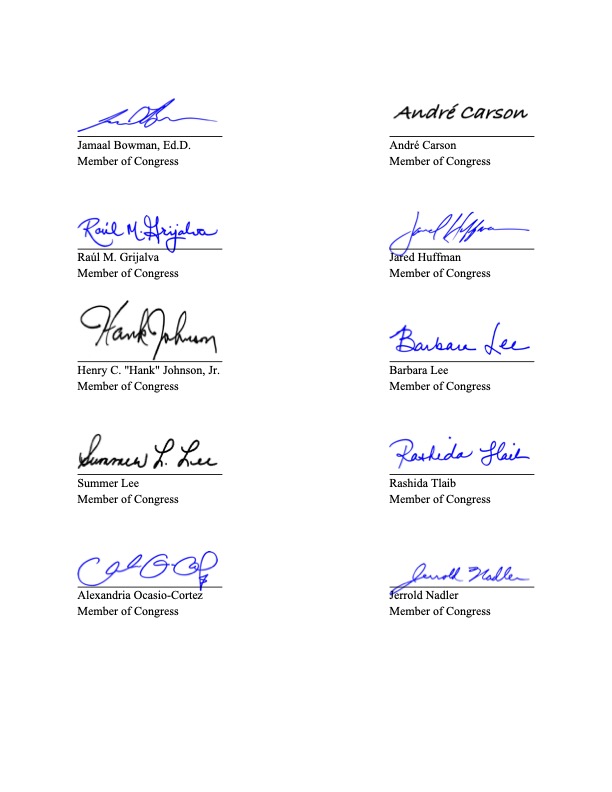 Jamaal Bowman, Ed.D.
Member of Congress
André Carson
André Carson
Member of Congress
Raúl M. Grijalva
Raúl M. Grijalva
Member of Congress
Jared Huffman
Jared Huffman
Member of Congress
Hank Johnson
Henry C. "Hank" Johnson, Jr.
Member of Congress
Barbara Lee
Barbara Lee
Member of Congress
Summer L. Lee
Summer Lee
Member of Congress
Rashida Tlaib
Rashida Tlaib
Member of Congress
Alexandria Ocasio-Cortez
Member of Congress
Jerrold Nadler
Jerrold Nadler
Member of Congress